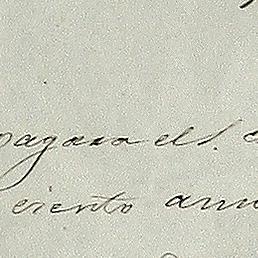 pagara el 1.
ciento anu